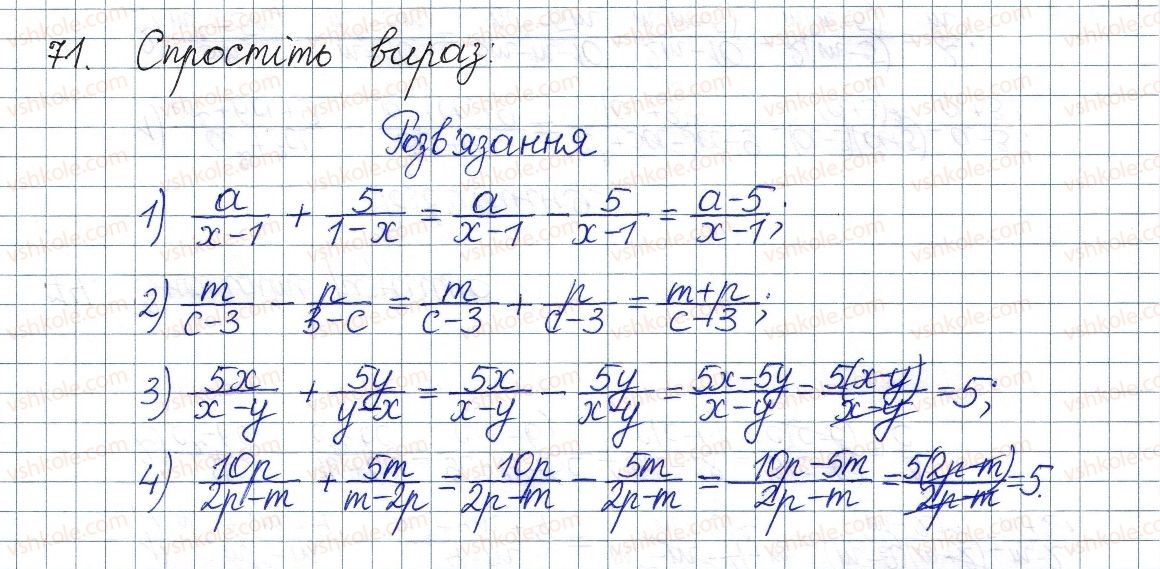 71. Спростіть вираз:
Розв'язання
1) a/(x-1) + 5/(1-x) = a/(x-1) - 5/(x-1) = (a-5)/(x-1);
2) m/(c-3) - p/(3-c) = m/(c-3) + p/(c-3) = (m+p)/(c-3);
3) 5x/(x-y) + 5y/(y-x) = 5x/(x-y) - 5y/(x-y) = (5x-5y)/(x-y) = 5(x-y)/(x-y) = 5;
4) 10p/(2p-m) + 5m/(m-2p) = 10p/(2p-m) - 5m/(2p-m) = (10p-5m)/(2p-m) = 5(2p-m)/(2p-m) = 5.
vshkole.com